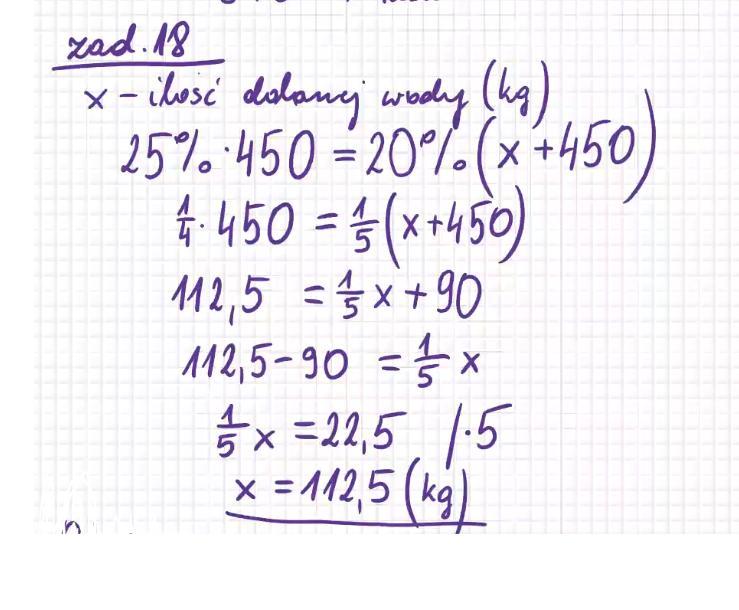 zad. 18
x - ilość dolanej wody (kg)
25% · 450 = 20% · (x + 450)
1/4 · 450 = 1/5 (x + 450)
112,5 = 1/5 x + 90
112,5 - 90 = 1/5 x
1/5 x = 22,5 /·5
x = 112,5 (kg)